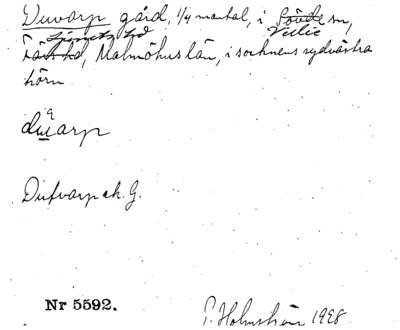 Duvarp gård, 1/4 mantal, i Sövde sn,
Vellie
Ljunits hd
Färs hd, Malmöhus län, i socknens sydvästra
hörn
Dufvarp ek. G.
Nr 5592.
P. Holmström 1928